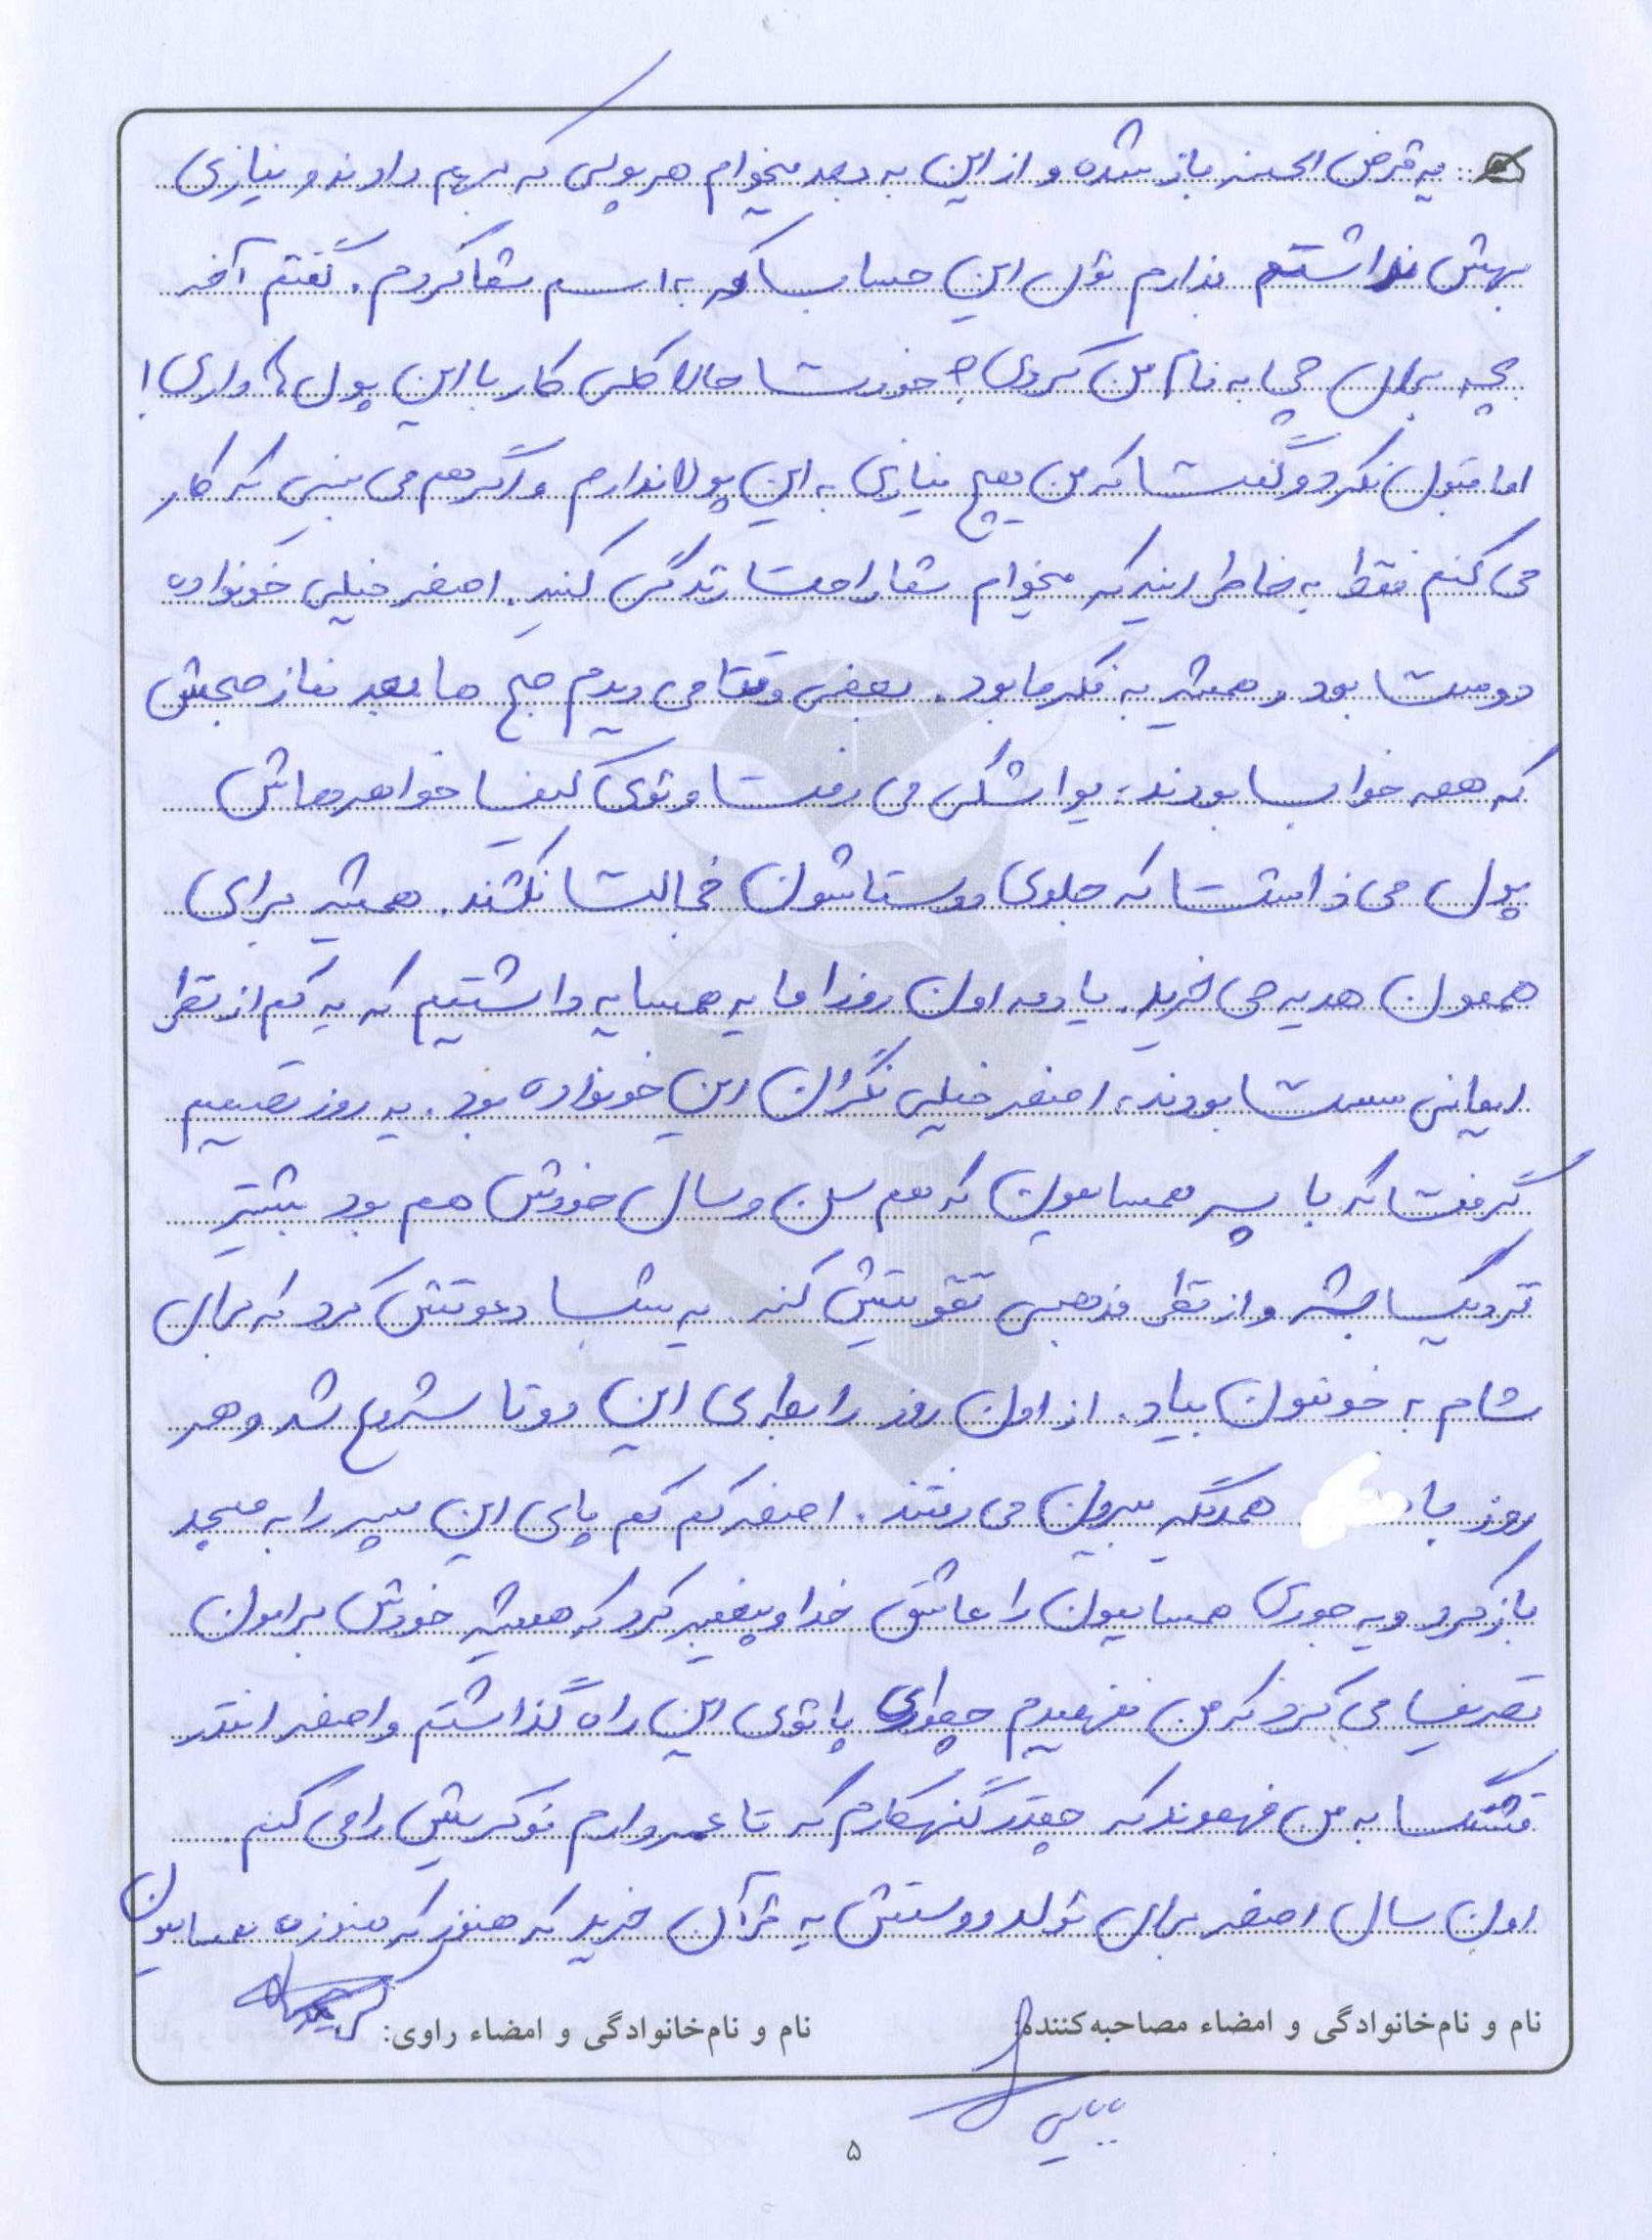 یه قرض الحسنه باز شده و از این به بعد میخوام هر پولی که بهم دادند و نیازی
بهش نداشتم بذارم توی این حساب که به اسم شما کردم. گفتم آخه
بچه برای چی به نام من کردی؟ خودت حالا کلی کار با این پول ها داری!
اما قبول نکرد و گفت که من هیچ نیازی به این پولا ندارم و اگر هم می بینی که کار
می کنم فقط به خاطر اینه که میخوام شما راحت زندگی کنید. اصغر خیلی خونواده
دوست بود و همیشه به فکر ما بود. بعضی وقتا می دیدم صبح ها بعد نماز صبحش
که همه خواب بودند، یواشکی می رفت و توی کیف خواهرهاش
پول می ذاشت که جلوی دوستاشون خجالت نکشند. همیشه برای
هممون هدیه می خرید. یادمه اون روزا ما یه همسایه داشتیم که یه کم از نظر
ایمانی سست بودند، اصغر خیلی نگران این خونواده بود. یه روز تصمیم
گرفت که با پسر همسامون که هم سن و سال خودش هم بود بیشتر
نزدیک بشه و از نظر مذهبی تقویتش کنه. یه شب دعوتش کرد که برای
شام به خونمون بیاد. از اون روز رابطه ی این دوتا شروع شد و هر
روز با همدیگه بیرون می رفتند. اصغر کم کم پای این پسر را به مسجد
باز کرد و یه جوری همسایمون را عاشق خدا و پیغمبر کرد که همیشه خودش برامون
تعریف می کرد که من نفهمیدم چجوری پا توی این راه گذاشتم و اصغر انقدر
قشنگ به من فهموند که چقدر گنهکارم که تا عمر دارم نوکریش را می کنم.
اون سال اصغر برای تولد دوستش یه قرآن خرید که هنوز که هنوزه همسایمون
نام و نام‌خانوادگی و امضاء مصاحبه‌کننده: نام و نام‌خانوادگی و امضاء راوی:
۵